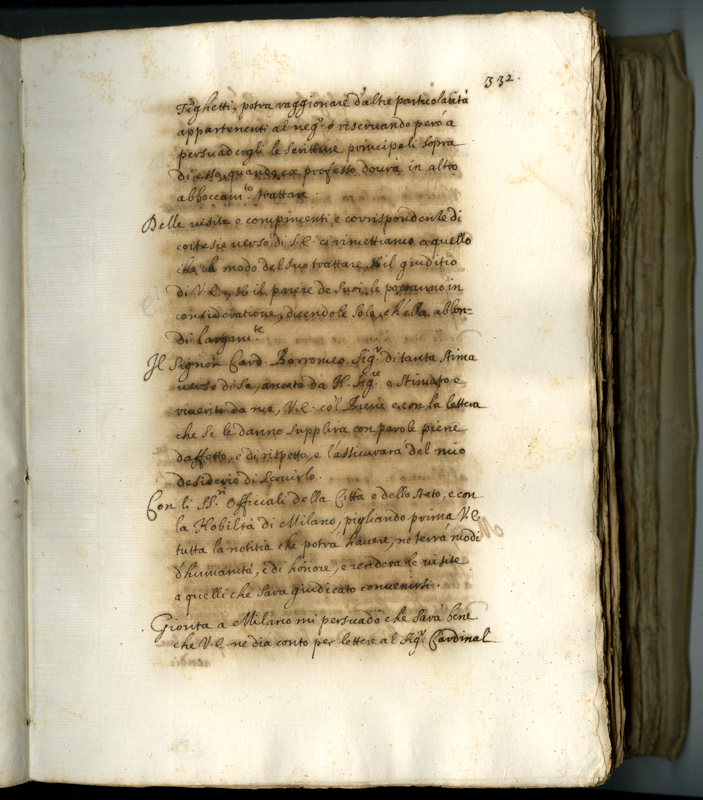 332.
Righetti, potra raggionare d'altre particolarità
appartenenti al neg.º riseruando però a
persuadergli le scritture principali sopra
di esso, quando ex professo dourà in altro
abboccam.to trattare.
Delle uisite e compimenti, e corrispondente di
cortesie uerso di S.E. ci rimettiamo a quello
che il modo del suo trattare, il giuditio
di V.E., il parere de suoi, le portanno in
consideratione, dicendole solo, ch'ella abbon-
di largam.te
Il Signor Card. Borromeo Sig.r di tanta stima
uerso di se, amato da N. Sig.re e stimato e
riuerito da me, V.E. col Breue e con la lettera
che se le danno supplirà con parole piene
d'affetto, e di rispetto, e l'assicurarà del mio
desiderio di seruirlo.
Con li SS.ri Officiali della Città e dello stato, e con
la Nobiltà di Milano, pigliando prima V.E.
tutta la notitia che potrà hauere, ne terrà modi
d'humanità, e di honore, e renderà le uisite
a quelli che sarà giudicato conuenirsi.
Gionta a Milano mi persuado che sarà bene
che V.E. ne dia conto per lettere al Sig.r Cardinal